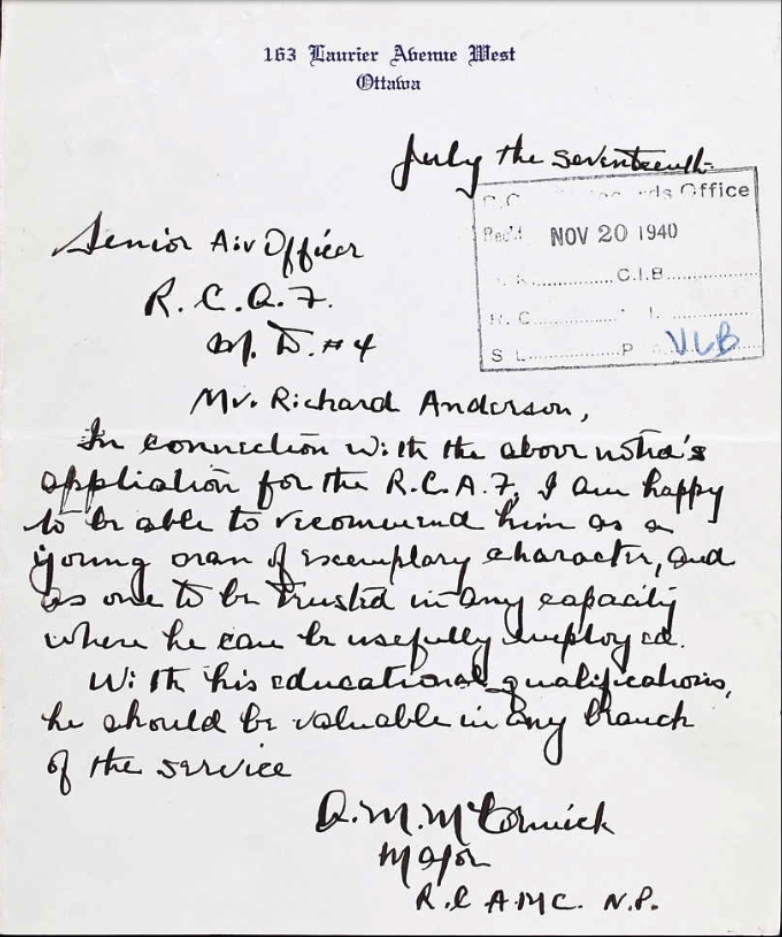 163 Laurier Avenue West
Ottawa
July the seventeenth
Office
Rec'd NOV 20 1940
C.I.B.
S L P VLB
Senior Air Officer
R. C. A. F.
M. D. # 4
Mr. Richard Anderson,
In connection with the above
application for the R.C.A.F, I am happy
to be able to recommend him as a
young man of exemplary character, and
as one to be trusted in any capacity
where he can be usefully employed.
With his educational qualifications,
he should be valuable in any branch
of the service
McCormick
Major
R.C A.M.C. N.P.